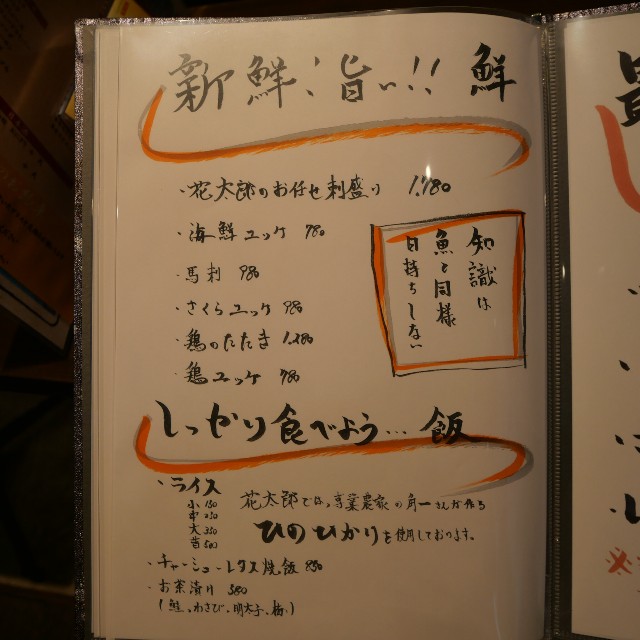 新鮮!旨い!! 鮮
・花太郎のお任せ刺盛り 1,780
・海鮮ユッケ 780
・馬刺 980
・さくらユッケ 980
・鶏のたたき 1,280
・鶏ユッケ 980
知識は
魚と同様
日持ちしない
しっかり食べよう… 飯
・ライス
小 150
中 250
大 350
昔 500
花太郎では、専業農家の角一さんが作る
ひのひかりを使用しております。
・チャーシューレタス焼飯 850
・お茶漬け 580
(鮭、わさび、明太子、梅)